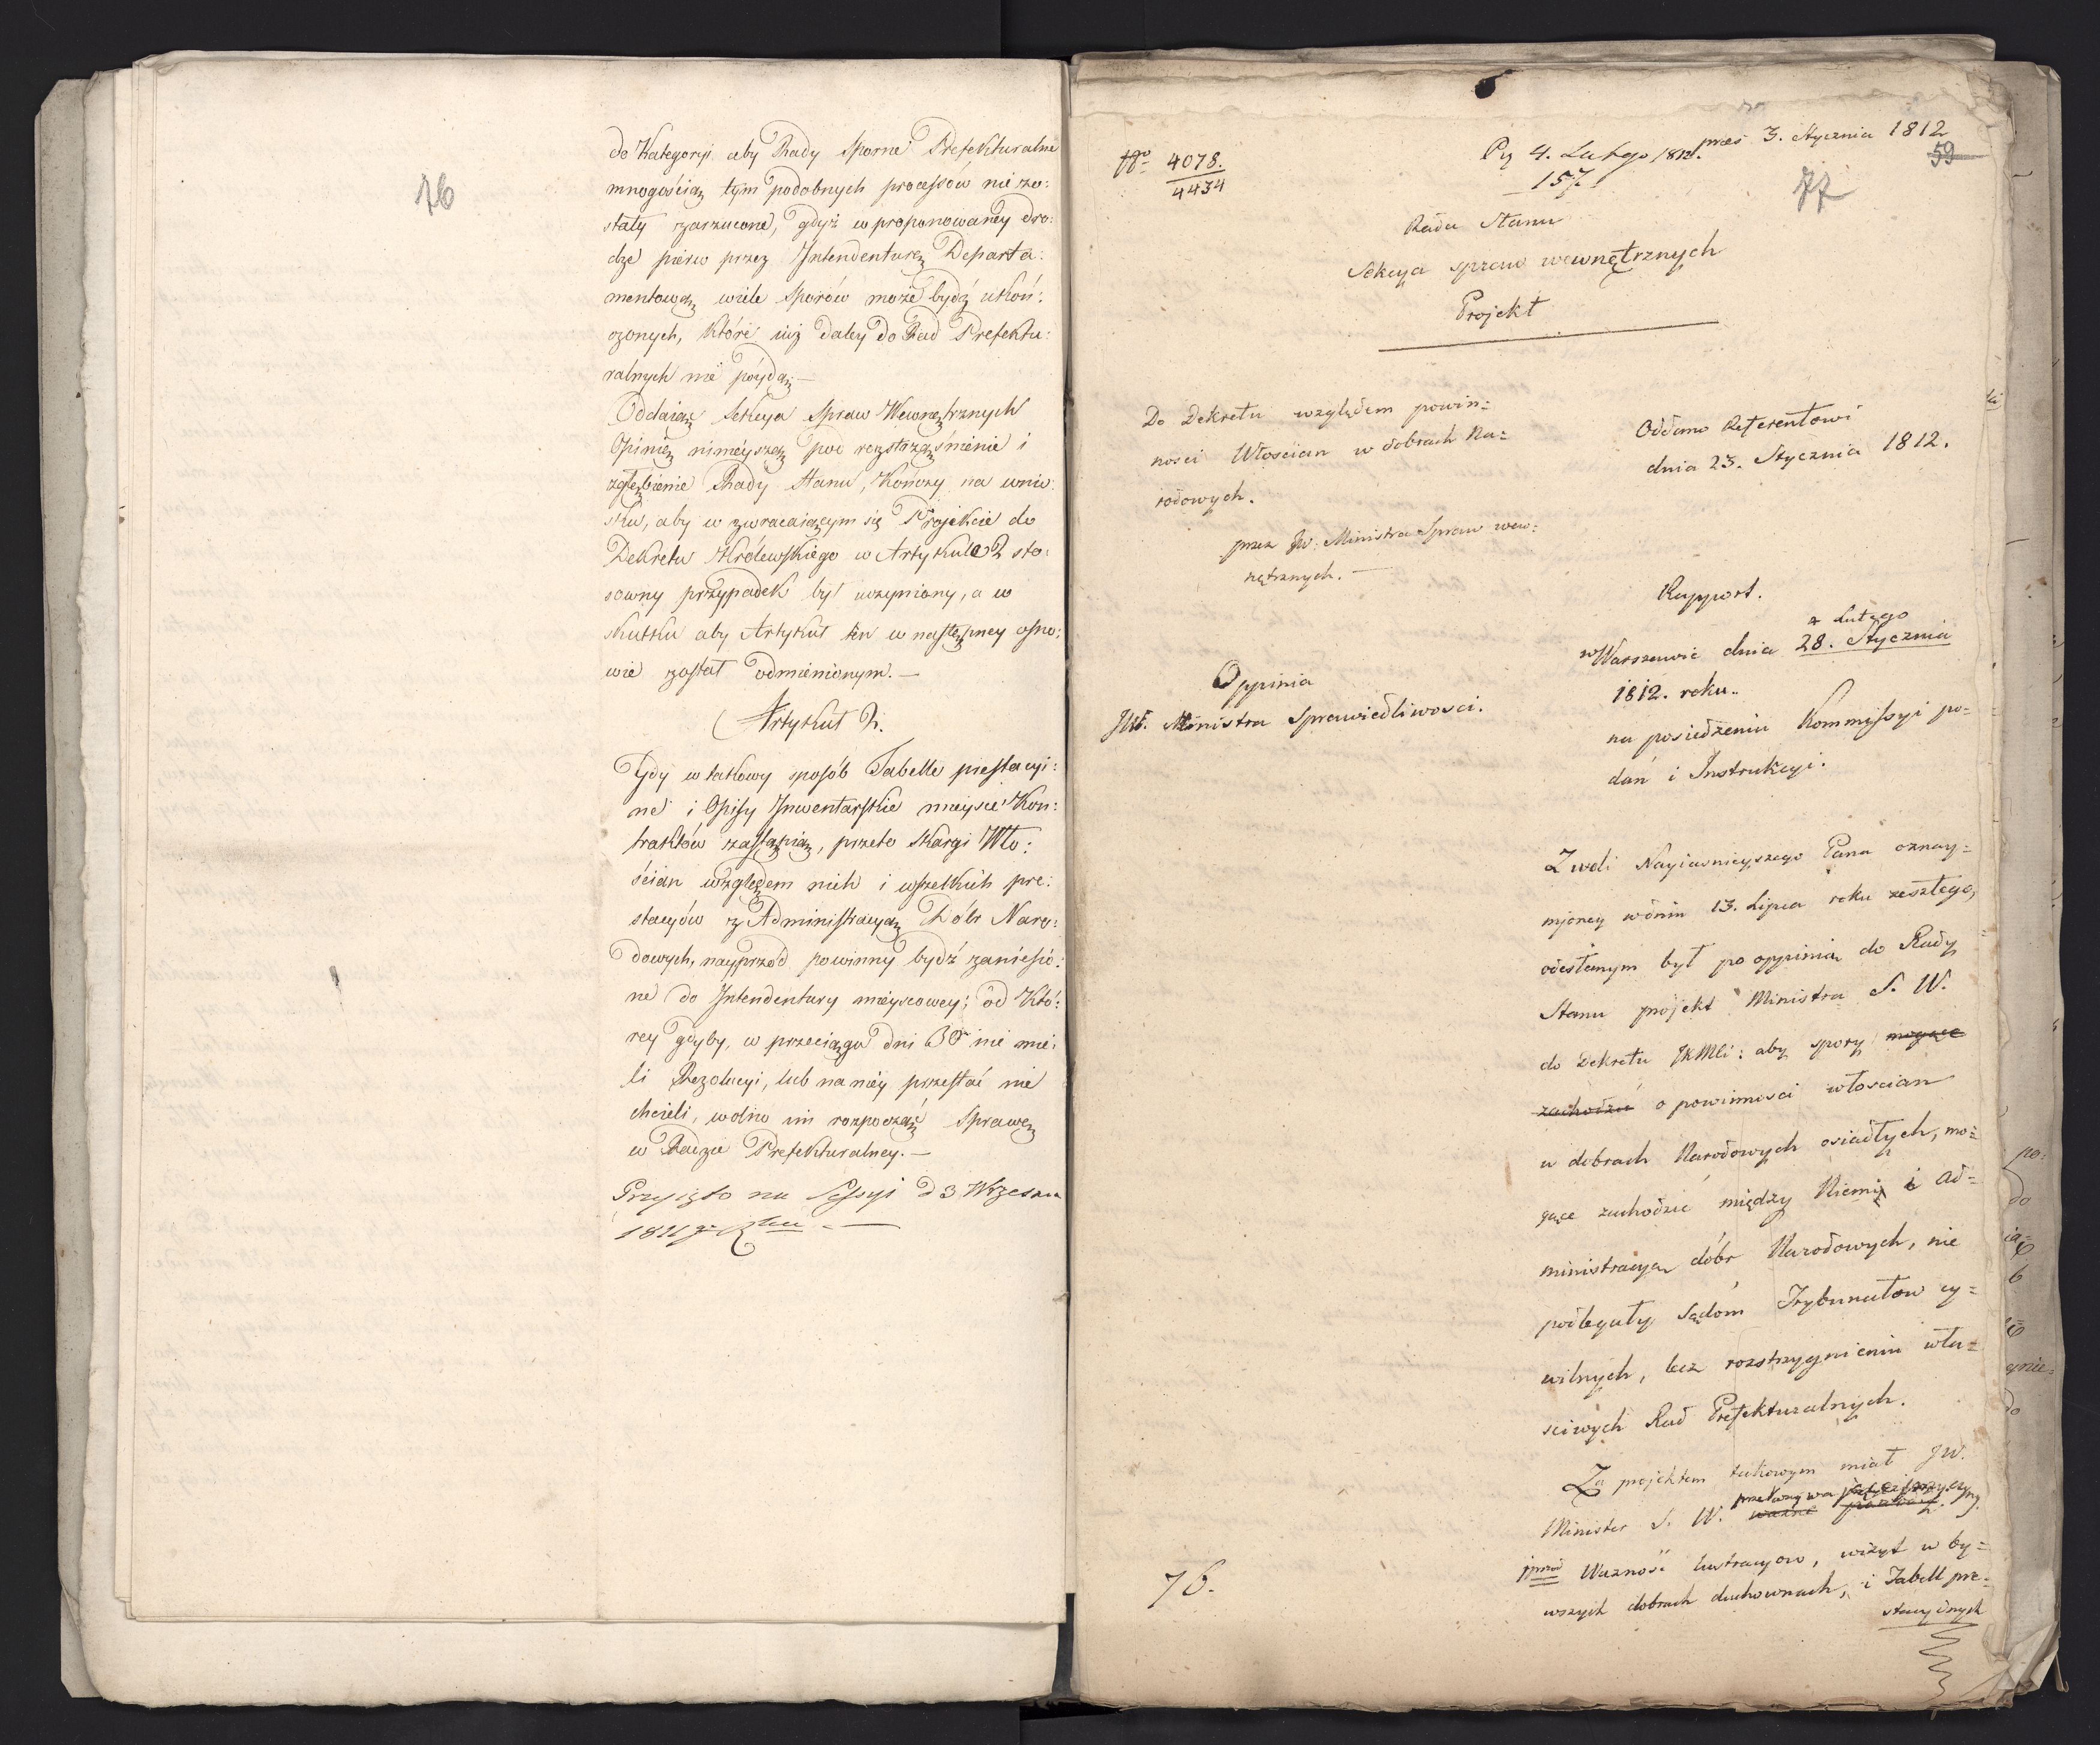 76
do Kategoryi aby Rady Sporne Prefekturalne
mnogością tym podobnych processów nie zo:
stały zarzucone, gdyż w proponowaney dro:
dze pierw przez Intendenturę Departa:
mentową wiele Sporów może bydź ukoń:
czonych, które iuż daley do Rad Prefektu:
ralnych nie póydą —
Oddaiąc Sekcya Spraw Wewnętrznych
Opinię ninieyszą pod rozstrząśnienie i
zgłębienie Rady Stanu, Kończy na wnio:
sku, aby w zwracaiącym się Projekcie do
Dekretu Królewskiego w Artykule 2 sto:
sowny przypadek był uczyniony, a w
skutku aby Artykuł ten w następney osno:
wie został odmienionym. —
Artykuł 2.
Gdy w takowy sposób Tabelle prestacyi:
ne i Opisy Inwentarskie mieysce Kon:
traktów zastąpią, przeto Skargi Wło:
ścian względem nich i wszelkich pre:
stacyów z Administracyą Dóbr Naro:
dowych, nayprzód powinny bydź zaniesio:
ne do Intendentury mieyscowey; od Któ:
rey gdyby, w przeciągu dni 30 nie mie:
li Rezolucyi, lub na niey przestać nie
chcieli, wolno im rozpocząć Sprawę
w Radzie Prefekturalney. —
Przyięto na Sessyi d 3 Września
1811 go
No 4078.
4434
4. Lutego 1812. pres 3. Stycznia 1812
157
59
77
Rada Stanu
Sekcya spraw wewnętrznych
Projekt
Do Dekretu względem powin=
nosci Włoscian w dobrach Na=
rodowych.
przez JW. Ministra Spraw wew=
nętrznych. —
Oddano Referentowi
dnia 23. Stycznia 1812.
Rapport.
4 Lutego
w Warszawie dnia 28. Stycznia
1812. roku.
na posiedzeniu Kommissyi po=
dań i Instrukcyi.
Oppinia
JW. Ministra Sprawiedliwosci.
Z woli Nayiasnieyszego Pana oznay=
mioney w dniu 13. Lipca roku zeszłego,
odesłanym był po oppinią do Rady
Stanu projekt Ministra S. W.
do Dekretu JKMci: aby spory mogące
zachodzić o powinnosci włoscian
w dobrach Narodowych osiadłych, mo=
gące zachodzić między Niemi i Ad=
ministracyą dóbr Narodowych, nie
podlegały Sądóm Trybunałow cy=
wilnych, lecz rozstrzygnieniu wła=
sciwych Rad Prefekturalnych.
Za projektem takowym miał JW.
Minister S. W. ważne
Wazność lustracyow, wizyt w by=
wszych dobrach duchownych, i Tabell pre=
stacyinych
76.